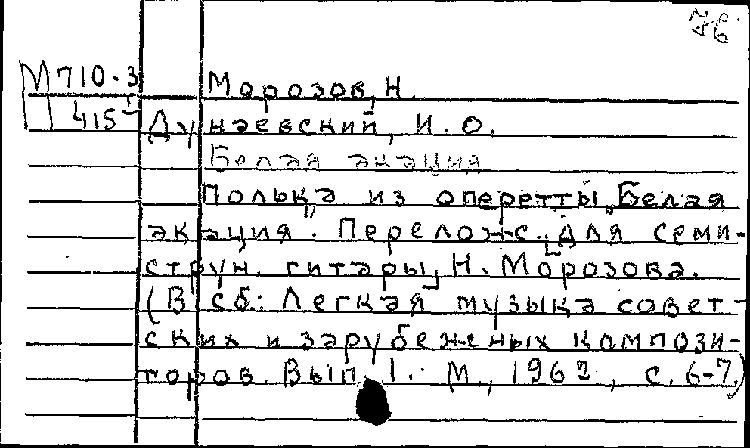 76
М 710.3 Морозов, Н.
415 Дунаевский, И. О.
Белая акация
Полька из оперетты „Белая
акация". Перелож. [для семи-
струн. гитары] Н. Морозова.
(В сб: Легкая музыка совет-
ских и зарубежных компози-
торов. Вып. 1. М., 1962, с. 6-7)